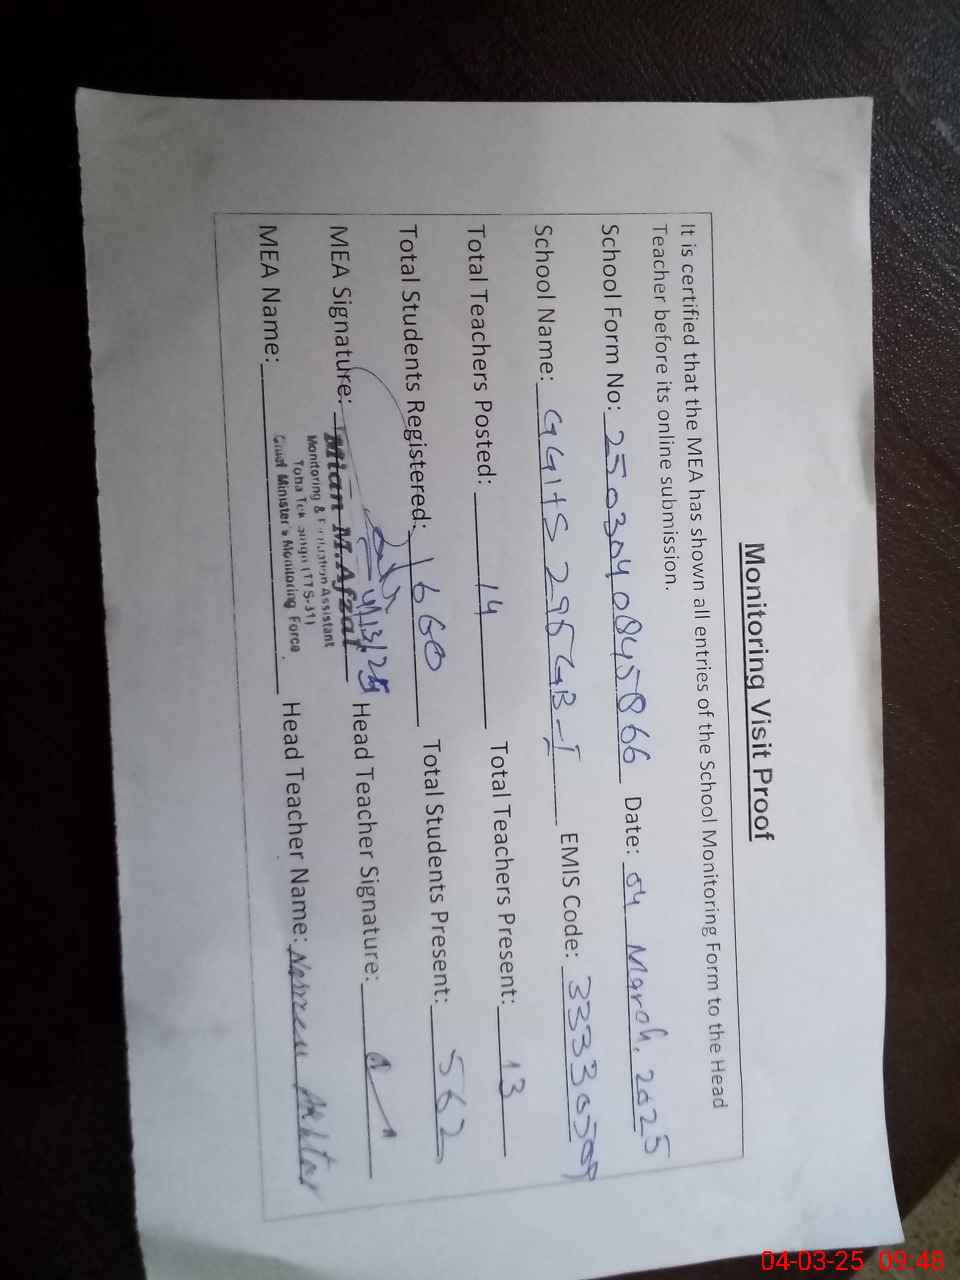 Monitoring Visit Proof
It is certified that the MEA has shown all entries of the School Monitoring Form to the Head
Teacher before its online submission.
School Form No: 250304084S866 Date: 04 March, 2025
School Name: GGHS 295 GB-I EMIS Code:
Total Teachers Posted: 14 Total Teachers Present: 13
Total Students Registered: 660 Total Students Present: 562
MEA Signature: 4/3/25 Head Teacher Signature:
Mian M. Afzal
Monitoring & Assistant
Toba Tek (TTS-31)
Chief Minister's Monitoring Force
MEA Name: Head Teacher Name: Akhtar
04-03-25 09:48